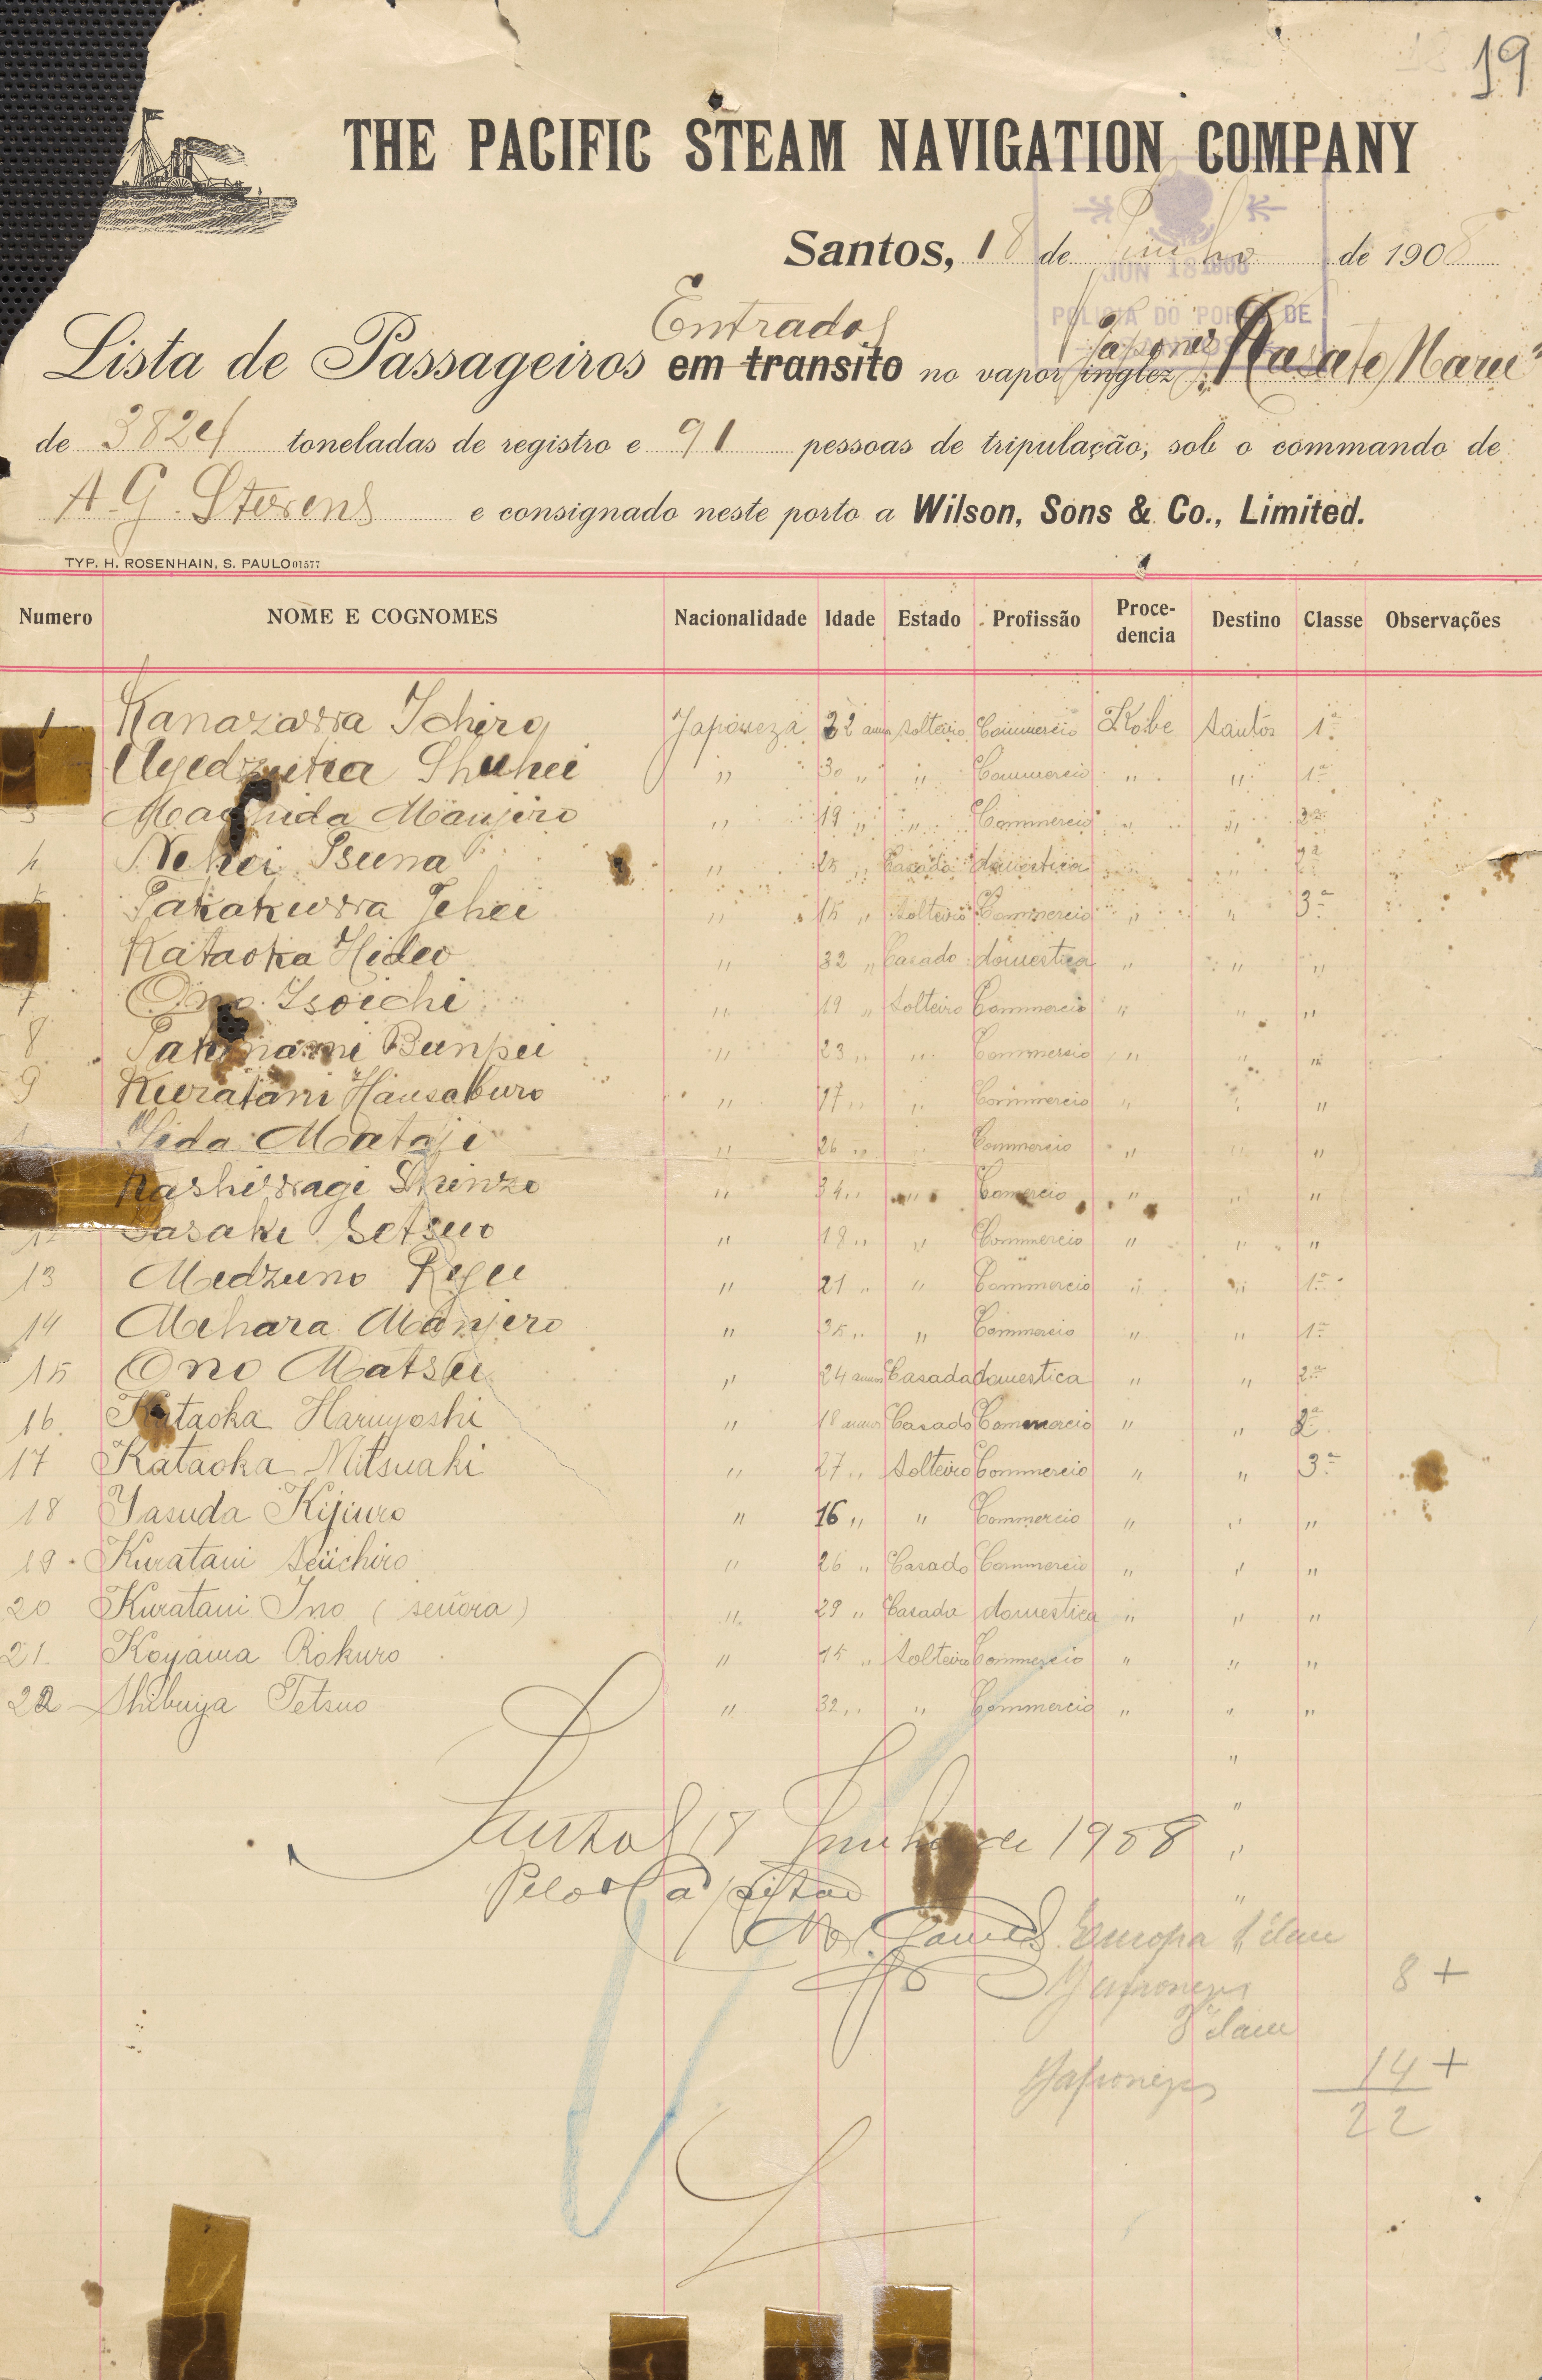 19
THE PACIFIC STEAM NAVIGATION COMPANY
Santos, 18 de Junho de 1908
JUN 18 1908
POLICIA DO PORTO DE
Entrados
Lista de Passageiros em transito no vapor inglez Japones Kasato Maru
de 3824 toneladas de registro e 91 pessoas de tripulação, sob o commando de
A. G. Stevens e consignado neste porto a Wilson, Sons & Co., Limited.
TYP. H. ROSENHAIN, S. PAULO 01577
Numero NOME E COGNOMES Nacionalidade Idade Estado Profissão Procedencia Destino Classe Observações
1 Kanazawa Ichiro Japoneza 22 annos solteiro Commercio Kobe Santos 1ª
Uyedzuka Shuhei " 30 " " Commercio " " 1ª
3 Manjiro " 19 " " Commercio " "
4 Nehei Tsuna " 25 " Casada domestica " " 2ª
Takakuwa Jehei " 15 " Solteiro Commercio " " 3ª
Kataoka Hideo " 32 " Casado domestica " " "
7 Ono Isoichi " 19 " Solteiro Commercio " " "
8 Bunpei " 23 " " Commercio " " "
9 Kuratani Hansaburo " 17 " " Commercio " " "
Mataji " 26 " Commercio " " "
Kashiwagi Shinzo " 34 " " Comercio " " "
12 Sasaki Setsuo " 19 " " Commercio " " "
13 Midzuno Ryu " 21 " " Commercio " " 1ª
14 Mihara Manjero " 35 " " Commercio " " 1ª
15 Ono Matsu " 24 annos Casada domestica " " 2ª
16. Kataoka Haruyoshi " 18 annos Casado Commercio " " 2ª
17 Kataoka Mitsuaki " 27 " Solteiro Commercio " " 3ª
18 Yasuda Kijiuro " 16 " " Commercio " " "
19 Kuratani Seiichiro " 26 " Casado Commercio " " "
20 Kuratani Ino (señora) " 29 " Casada domestica " " "
21. Koyama Rokuro " 15 " Solteiro Commercio " " "
22 Shibuya Tetsuo " 32 " " Commercio " " "
"
"
Santos 18 Junho de 1908 "
Pelo Capitão "
Europa 1ª classe
Japonezes 8 +
3ª classe
Japonezes 14 +
22